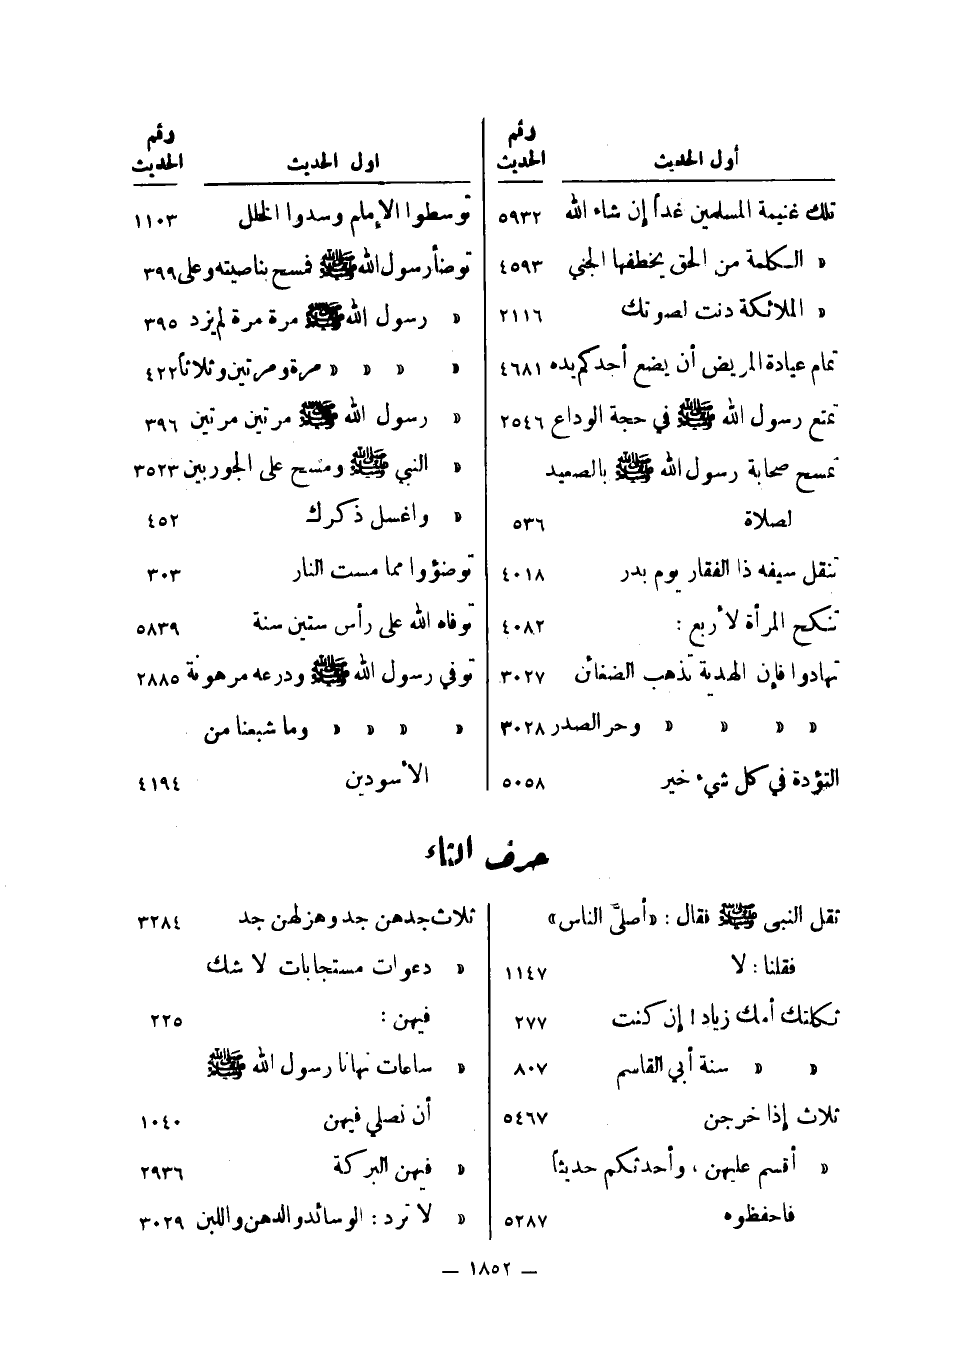 أول الحديث
رقم
الحديث
تلك غنيمة المسلمين غداً إن شاء الله ٥٩٣٢
« الكلمة من الحق يخطفها الجني ٤٥٩٣
« الملائكة دنت لصوتك ٢١١٦
تمام عيادة المريض أن يضع أحدكم يده ٤٦٨١
تمتع رسول الله ﷺ في حجة الوداع ٢٥٤٦
تمسح صحابة رسول الله ﷺ بالصعيد
لصلاة ٥٣٦
تنفل سيفه ذا الفقار يوم بدر ٤٠١٨
تنكح المرأة لأربع : ٤٠٨٢
تهادوا فإن الهدية تذهب الضغائن ٣٠٢٧
« « « « وحر الصدر ٣٠٢٨
التؤدة في كل شيء خير ٥٠٥٨
اول الحديث
رقم
الحديث
توسطوا الإمام وسدوا الخلل ١١٠٣
توضأ رسول الله ﷺ فمسح بناصيته وعلى ٣٩٩
« رسول الله ﷺ مرة مرة لم يزد ٣٩٥
« « « « مرة ومرتين وثلاثاً ٤٢٢
« رسول الله ﷺ مرتين مرتين ٣٩٦
« النبي ﷺ ومسح على الجوربين ٣٥٢٣
« واغسل ذكرك ٤٥٢
توضؤوا مما مست النار ٣٠٣
توفاه الله على رأس ستين سنة ٥٨٣٩
توفي رسول الله ﷺ ودرعه مرهونة ٢٨٨٥
« « « « وما شبعنا من
الأسودين ٤١٩٤
حرف الثاء
ثقل النبي ﷺ فقال : «أصلى الناس»
فقلنا : لا ١١٤٧
ثكلتك أمك زياد ! إن كنت ٢٧٧
« « سنة أبي القاسم ٨٠٧
ثلاث إذا خرجن ٥٤٦٧
« أقسم عليهن ، وأحدثكم حديثاً
فاحفظوه ٥٢٨٧
ثلاث جدهن جد وهزلهن جد ٣٢٨٤
« دعوات مستجابات لا شك
فيهن : ٢٢٥
« ساعات نهانا رسول الله ﷺ
أن نصلي فيهن ١٠٤٠
« فيهن البركة ٢٩٣٦
« لا ترد : الوسائد والدهن واللبن ٣٠٢٩
— ١٨٥٢ —